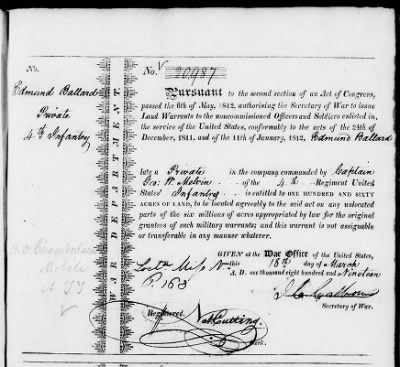 No.
Edmund Ballard
Private
4th Infantry
WAR DEPARTMENT.
No. 20987
Pursuant to the second section of an Act of Congress,
passed the 6th of May, 1812, authorising the Secretary of War to issue
Land Warrants to the noncommissioned Officers and Soldiers enlisted in
the service of the United States, conformably to the acts of the 24th of
December, 1811, and of the 11th of January, 1812, Edmund Ballard
late a Private in the company commanded by Captain
Geo. W. Melvin of the 4th Regiment United
States Infantry is entitled to ONE HUNDRED AND SIXTY
ACRES OF LAND, to be located agreeably to the said act on any unlocated
parts of the six millions of acres appropriated by law for the original
grantees of such military warrants; and this warrant is not assignable
or transferable in any manner whatever.
GIVEN at the War Office of the United States,
this 18th day of March
A. D. one thousand eight hundred and Nineteen
P. 163
J C Calhoun
Secretary of War.
Registered, Nat. Cutting.
Clerk.
Mobile